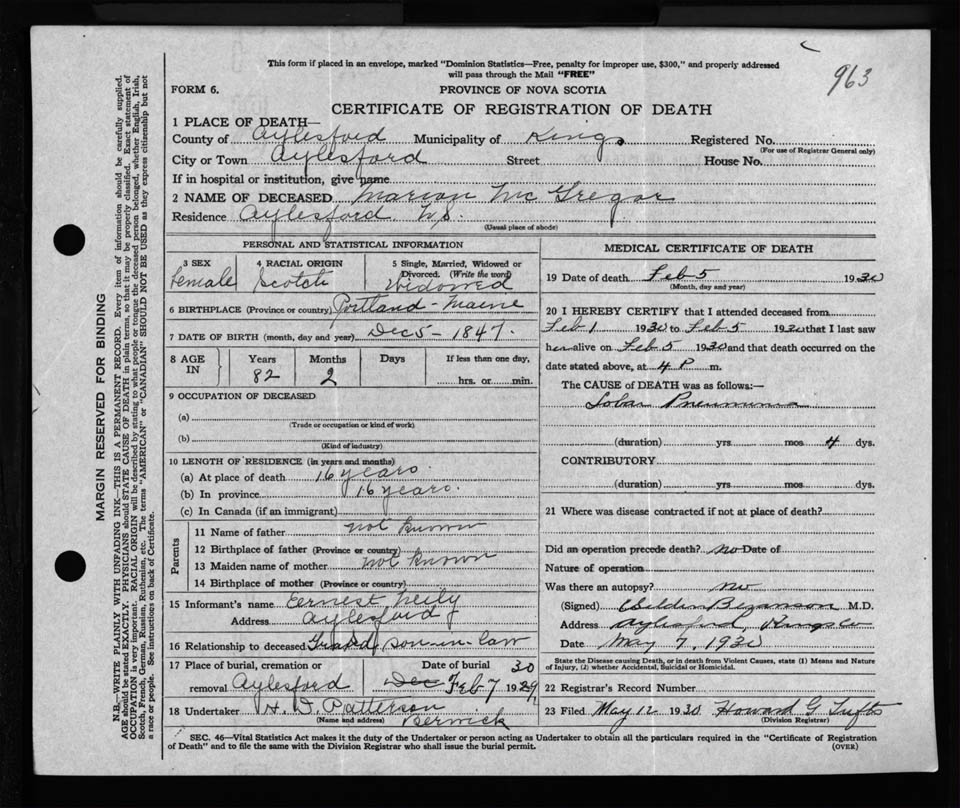 963
This form if placed in an envelope, marked "Dominion Statistics—Free, penalty for improper use, $300," and properly addressed
will pass through the Mail "FREE"
FORM 6.
PROVINCE OF NOVA SCOTIA
CERTIFICATE OF REGISTRATION OF DEATH
1 PLACE OF DEATH—
County of Aylesford Municipality of Kings Registered No.
(For use of Registrar General only)
City or Town Aylesford Street House No.
If in hospital or institution, give name
2 NAME OF DECEASED Marion McGregor
Residence Aylesford N.S.
(Usual place of abode)
PERSONAL AND STATISTICAL INFORMATION
3 SEX
female
4 RACIAL ORIGIN
Scotch
5 Single, Married, Widowed or
Divorced. (Write the word)
Widowed
6 BIRTHPLACE (Province or country) Portland - Maine
7 DATE OF BIRTH (month, day and year) Dec 5 - 1847.
8 AGE
IN
Years
82
Months
2
Days
If less than one day,
hrs. or min.
9 OCCUPATION OF DECEASED
(a)
(Trade or occupation or kind of work)
(b)
(Kind of industry)
10 LENGTH OF RESIDENCE (in years and months)
(a) At place of death 16 years.
(b) In province 16 years.
(c) In Canada (if an immigrant)
Parents
11 Name of father not known
12 Birthplace of father (Province or country)
13 Maiden name of mother not known
14 Birthplace of mother (Province or country)
15 Informant's name Eernest Neily
Address Aylesford
16 Relationship to deceased Grand son-in-law
17 Place of burial, cremation or
removal Aylesford
Date of burial 30
Dec Feb 7 1929
18 Undertaker H. D. Patterson
(Name and address) Berwick
MEDICAL CERTIFICATE OF DEATH
19 Date of death Feb 5 1930
(Month, day and year)
20 I HEREBY CERTIFY that I attended deceased from
Feb 1 1930 to Feb 5 1930 that I last saw
her alive on Feb 5 1930 and that death occurred on the
date stated above, at 4 P m.
The CAUSE of DEATH was as follows:—
Lobar Pneumonia
(duration) yrs mos 4 dys.
CONTRIBUTORY
(duration) yrs mos dys.
21 Where was disease contracted if not at place of death?
Did an operation precede death? no Date of
Nature of operation
Was there an autopsy? no
(Signed) Bezanson M.D.
Address Aylesford, Kings Co
Date May 7, 1930
State the Disease causing Death, or in death from Violent Causes, state (1) Means and Nature
of Injury, (2) whether Accidental, Suicidal or Homicidal.
22 Registrar's Record Number
23 Filed May 12 1930 Howard G Tufts
(Division Registrar)
SEC. 46—Vital Statistics Act makes it the duty of the Undertaker or person acting as Undertaker to obtain all the particulars required in the "Certificate of Registration
of Death" and to file the same with the Division Registrar who shall issue the burial permit.
(OVER)
MARGIN RESERVED FOR BINDING
N.B.—WRITE PLAINLY WITH UNFADING INK—THIS IS A PERMANENT RECORD. Every item of information should be carefully supplied.
AGE should be stated EXACTLY. PHYSICIANS should STATE CAUSE OF DEATH in plain terms, so that it may be properly classified. Exact statement of
OCCUPATION is very important. RACIAL ORIGIN will be described by stating to what people or tongue the deceased person belonged, whether English, Irish,
Scotch, French, German, Russian, Ruthenian, etc. The terms "AMERICAN" or "CANADIAN" SHOULD NOT BE USED as they express citizenship but not
a race or people. See instructions on back of Certificate.